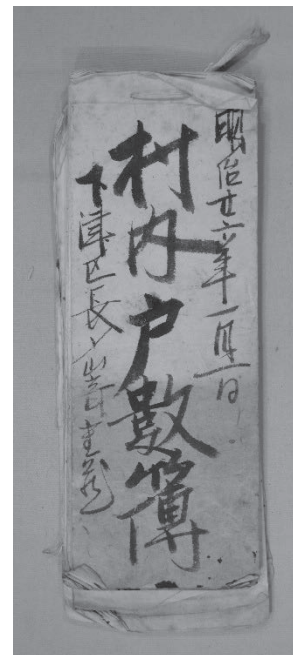 明治廿六年一月一日
村内戸數簿
下津区長